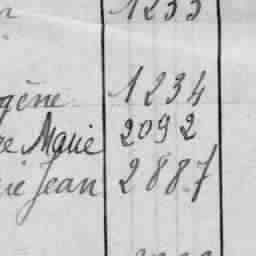 1233
gène 1234
Marie 2092
Jean 2887